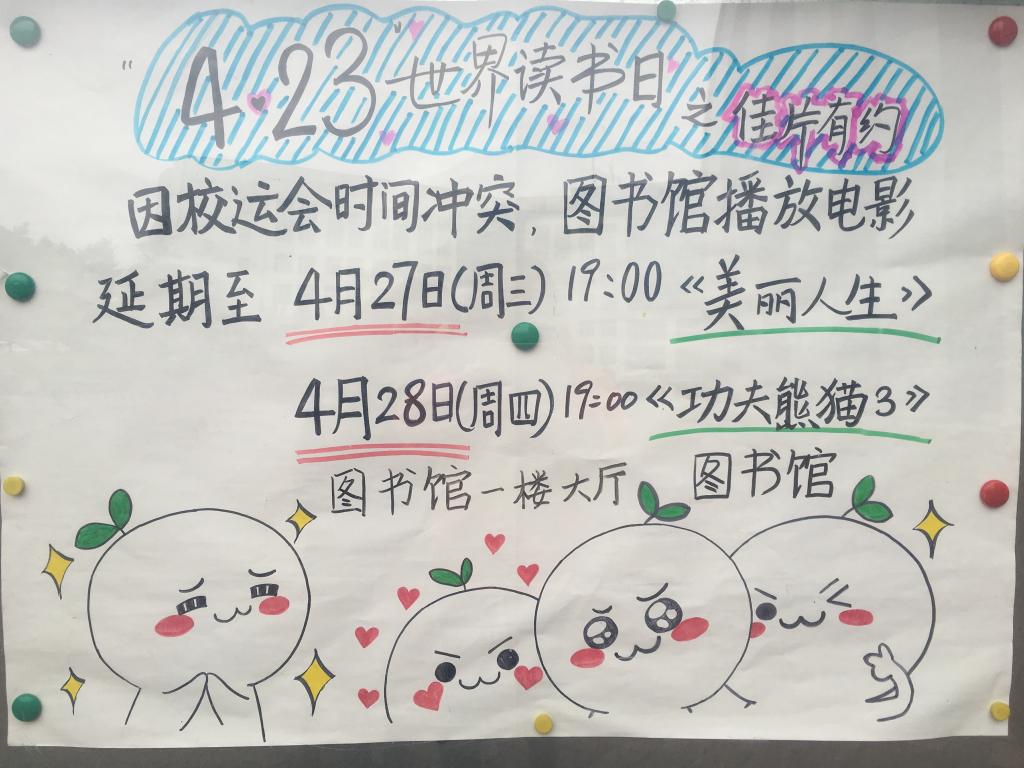 “4·23”世界读书日之佳片有约
因校运会时间冲突，图书馆播放电影
延期至 4月27日(周三) 19:00《美丽人生》
4月28日(周四) 19:00《功夫熊猫3》
图书馆一楼大厅 图书馆